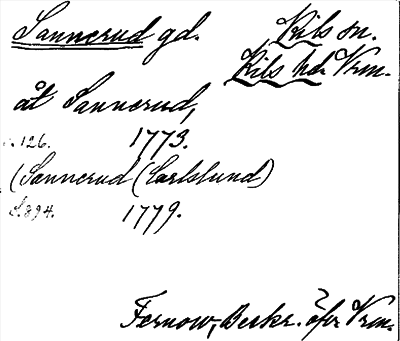 Sannerud gd. Kils sn.
Kils hd. Vrm.
åt Sannerud,
s. 126. 1773.
(Sannerud (Carlslund)
S. 894. 1779.
Fernow, Beskr. öfer Vrm.